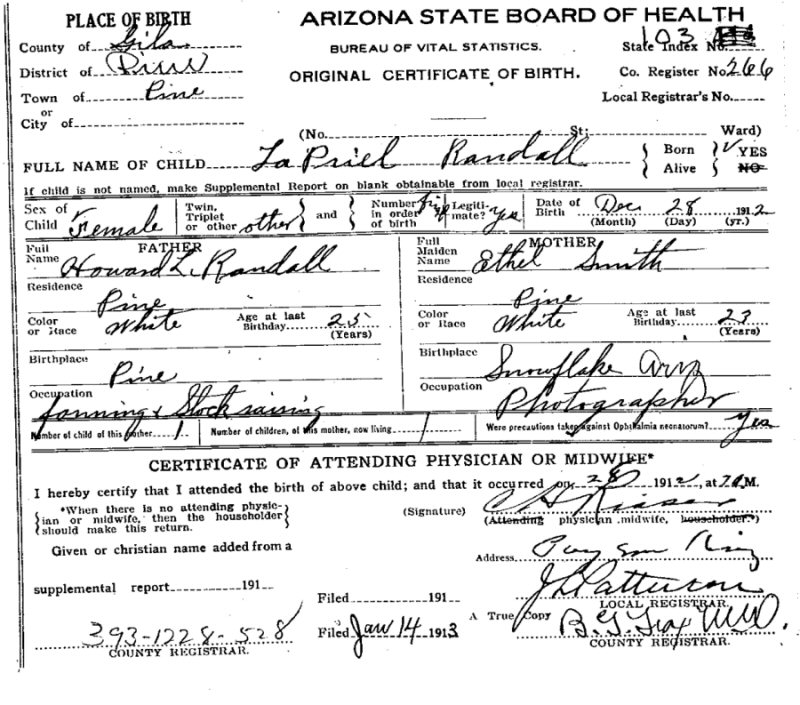 PLACE OF BIRTH
ARIZONA STATE BOARD OF HEALTH
County of Gila
BUREAU OF VITAL STATISTICS.
State Index No. 103
District of Pine
ORIGINAL CERTIFICATE OF BIRTH.
Co. Register No. 266
Town of Pine
or
Local Registrar's No.
City of
(No. St; Ward)
FULL NAME OF CHILD La Priel Randall { Born Alive } √ YES NO
If child is not named, make Supplemental Report on blank obtainable from local registrar.
Sex of Child Female
Twin, Triplet or other other
and
Number in order of birth first
Legitimate? Yes
Date of Birth Dec 28 1912
(Month) (Day) (yr.)
FATHER
Full Name Howard L. Randall
MOTHER
Full Maiden Name Ethel Smith
Residence Pine
Residence Pine
Color or Race White Age at last Birthday 25 (Years)
Color or Race White Age at last Birthday 23 (Years)
Birthplace Pine
Birthplace Snowflake Ariz
Occupation farming & Stock raising
Occupation Photographer
Number of child of this mother 1
Number of children, of this mother, now living 1
Were precautions taken against Ophthalmia neonatorum? Yes
CERTIFICATE OF ATTENDING PHYSICIAN OR MIDWIFE*
I hereby certify that I attended the birth of above child; and that it occurred on 28 1912, at M.
*When there is no attending physic-
ian or midwife, then the householder
should make this return.
(Signature) C H
(Attending physician, midwife, householder.*)
Given or christian name added from a
Address Payson Ariz
supplemental report 191
Filed 191
J L Patterson
LOCAL REGISTRAR.
393-1228-528
COUNTY REGISTRAR.
Filed Jan 14 1913
A True Copy
B. G. Fox M.D.
COUNTY REGISTRAR.